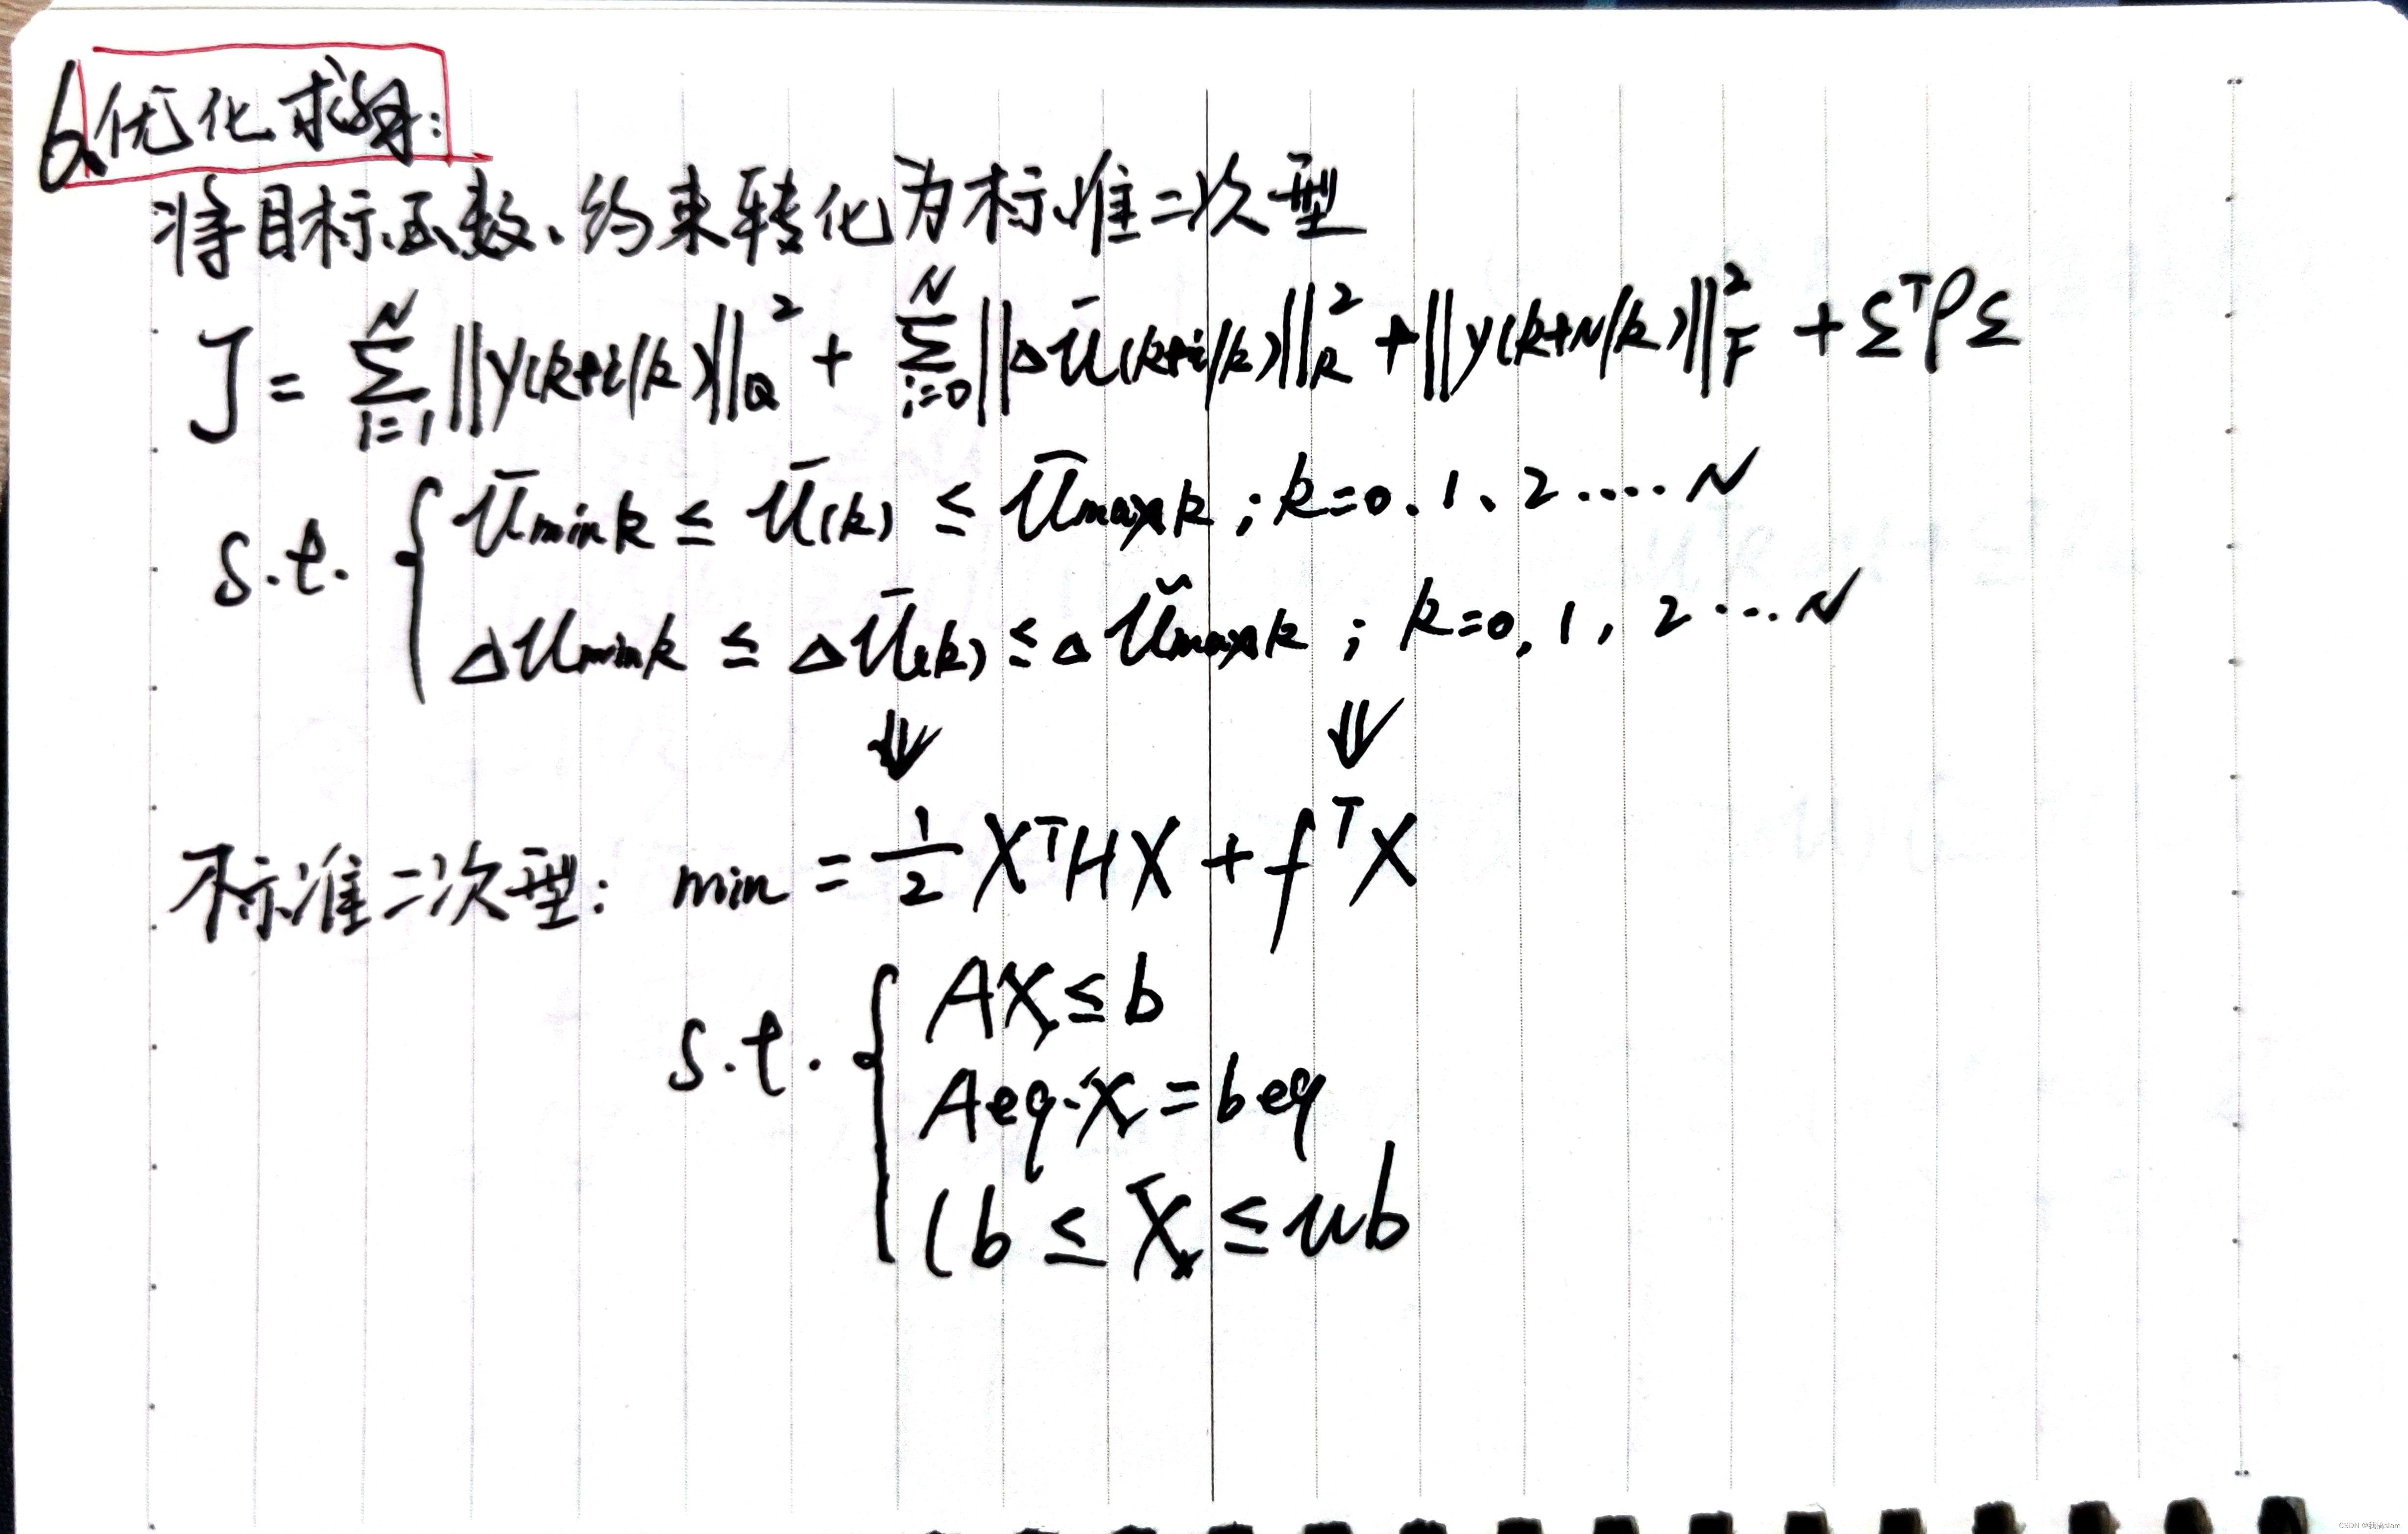 6、优化求解:
将目标函数、约束转化为标准二次型
J = ∑_{i=1}^{N} ||y(k+i/k)||_Q^2 + ∑_{i=0}^{N} ||Δū(k+i/k)||_R^2 + ||y(k+N/k)||_F^2 + Σ^T ρ Σ
s.t. { ūmink ≤ ū(k) ≤ ūmaxk ; k=0、1、2....N
Δumink ≤ Δū(k) ≤ Δŭmaxk ; k=0, 1, 2...N
⇓ ⇓
标准二次型: min = 1/2 X^T H X + f^T X
s.t. { AX ≤ b
Aeq·X = beq
lb ≤ X ≤ ub
CSDN @我搞slam